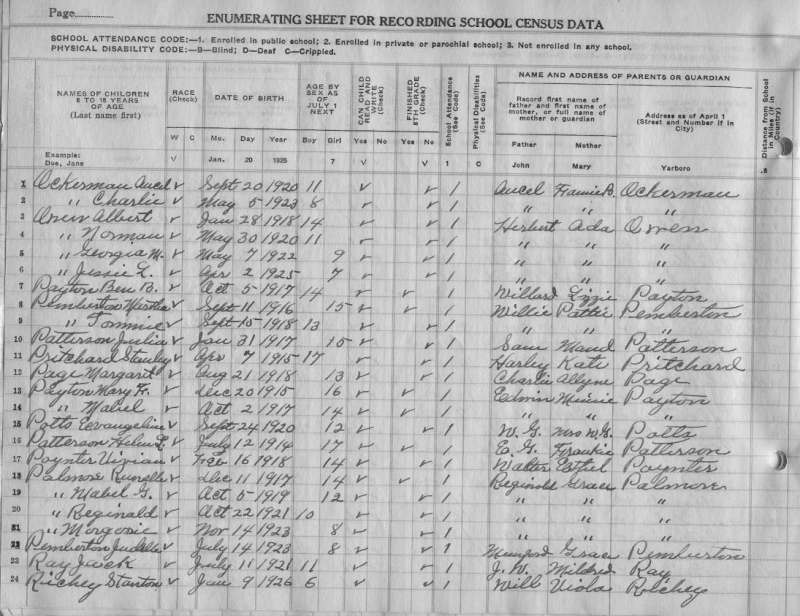 Page
ENUMERATING SHEET FOR RECORDING SCHOOL CENSUS DATA
SCHOOL ATTENDANCE CODE:—1. Enrolled in public school; 2. Enrolled in private or parochial school; 3. Not enrolled in any school.
PHYSICAL DISABILITY CODE:—B—Blind; D—Deaf C—Crippled.
NAMES OF CHILDREN 6 TO 18 YEARS OF AGE (Last name first) RACE (Check) DATE OF BIRTH AGE BY SEX AS OF JULY 1 NEXT CAN CHILD READ AND WRITE (Check) FINISHED 8TH GRADE (Check) School Attendance (See Code) Physical Disabilities (See Code) NAME AND ADDRESS OF PARENTS OR GUARDIAN Distance from School in Miles (if in Country)
Record first name of father and first name of mother, or full name of mother or guardian Address as of April 1 (Street and Number if in City)
W C Mo. Day Year Boy Girl Yes No Yes No Father Mother
Example: Doe, Jane V Jan. 20 1925 7 V V 1 C John Mary Yarboro .5
1 Ockerman Aucel v Sept 20 1920 11 v v 1 Aucel Fannie B. Ockerman
2 " Charlie v May 5 1923 8 v v 1 " " "
3 Owen Albert v Jan 28 1918 14 v v 1 Herbert Ada Owen
4 " Norman v May 30 1920 11 v v 1 " " "
5 " Georgia M. v May 7 1922 9 v v 1 " " "
6 " Jessie L. v Apr 2 1925 7 v v 1 " " "
7 Payton Ben B. v Oct 5 1917 14 v v 1 Willard Lizzie Payton
8 Pemberton v Sept 11 1916 15 v v 1 Willie Pattie Pemberton
9 " Tommie v Sept 15 1918 13 v v 1 " " "
10 Patterson Julia v Jan 31 1917 15 v v 1 Sam Maud Patterson
11 Pritchard Stanley v Apr 7 1915 17 v v 1 Harley Kate Pritchard
12 Page Margarit v Aug 21 1918 13 v v 1 Charlie Allyne Page
13 Peyton Mary F. v Dec 20 1915 16 v v 1 Edwin Minnie Payton
14 " Mabel v Oct 2 1917 14 v v 1 " " "
15 Potts Eevangeline v Sept 24 1920 12 v v 1 W. G. Mrs W.G. Potts
16 Patterson Helen L. v July 12 1914 17 v v 1 E. G. Frankie Patterson
17 Poynter Vivian v Feb 16 1918 14 v v 1 Walter Esthel Poynter
18 Palmore v Dec 11 1917 14 v v 1 Reginold Grace Palmore
19 " Mabel G. v Oct 5 1919 12 v v 1 " " "
20 " Reginald v Oct 22 1921 10 v v 1 " " "
21 " v Nov 14 1923 8 v v 1 " " "
22 Pemberton v July 14 1923 8 v v 1 Mumford Grace Pemberton
23 Ray Jack v July 11 1921 11 v v 1 J. W. Mildred Ray
24 Richey Stanton v Jan 9 1926 6 v v 1 Will Viola Richey